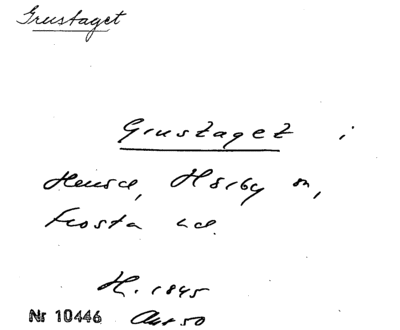 Grustaget
Grustaget i
Hörby sn,
Frosta hd.
H. 1845
Nr 10446